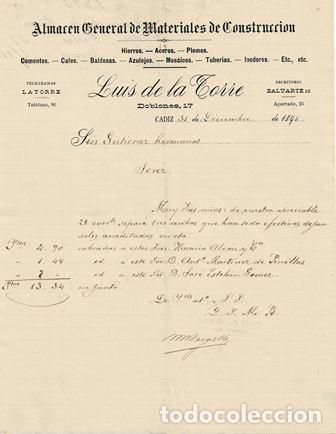 Almacen General de Materiales de Construccion
Hierros. — Aceros. — Plomos.
Cementos. — Cales. — Baldosas. — Azulejos. — Mosáicos. — Tuberias. — Inodoros. — Etc., etc.
TELEGRAMAS
LATORRE
Teléfono, 96
Luis de la Torre
Doblones, 17
ESCRITORIO
BALUARTE 15
Apartado, 25
CADIZ 31 de Diciembre de 1895
Sres Gutierrez hermanos
Jerez
Muy Sres mios: de nuestra apreciable
28 separé tres recibos que han sido efectivos
acreditados en cta
Ptas 4.90 cobrados a estos Sres Horacio Alcon y Ca
" 1.44 id a este Sor. D. Antº Martinez de Pinillos
" 7 " id a este Sor. D. José Esteban Gomez
Ptas 13.34 en junto.
De Vds atº y S. S.
Q. S. M. B.
todocoleccion.net